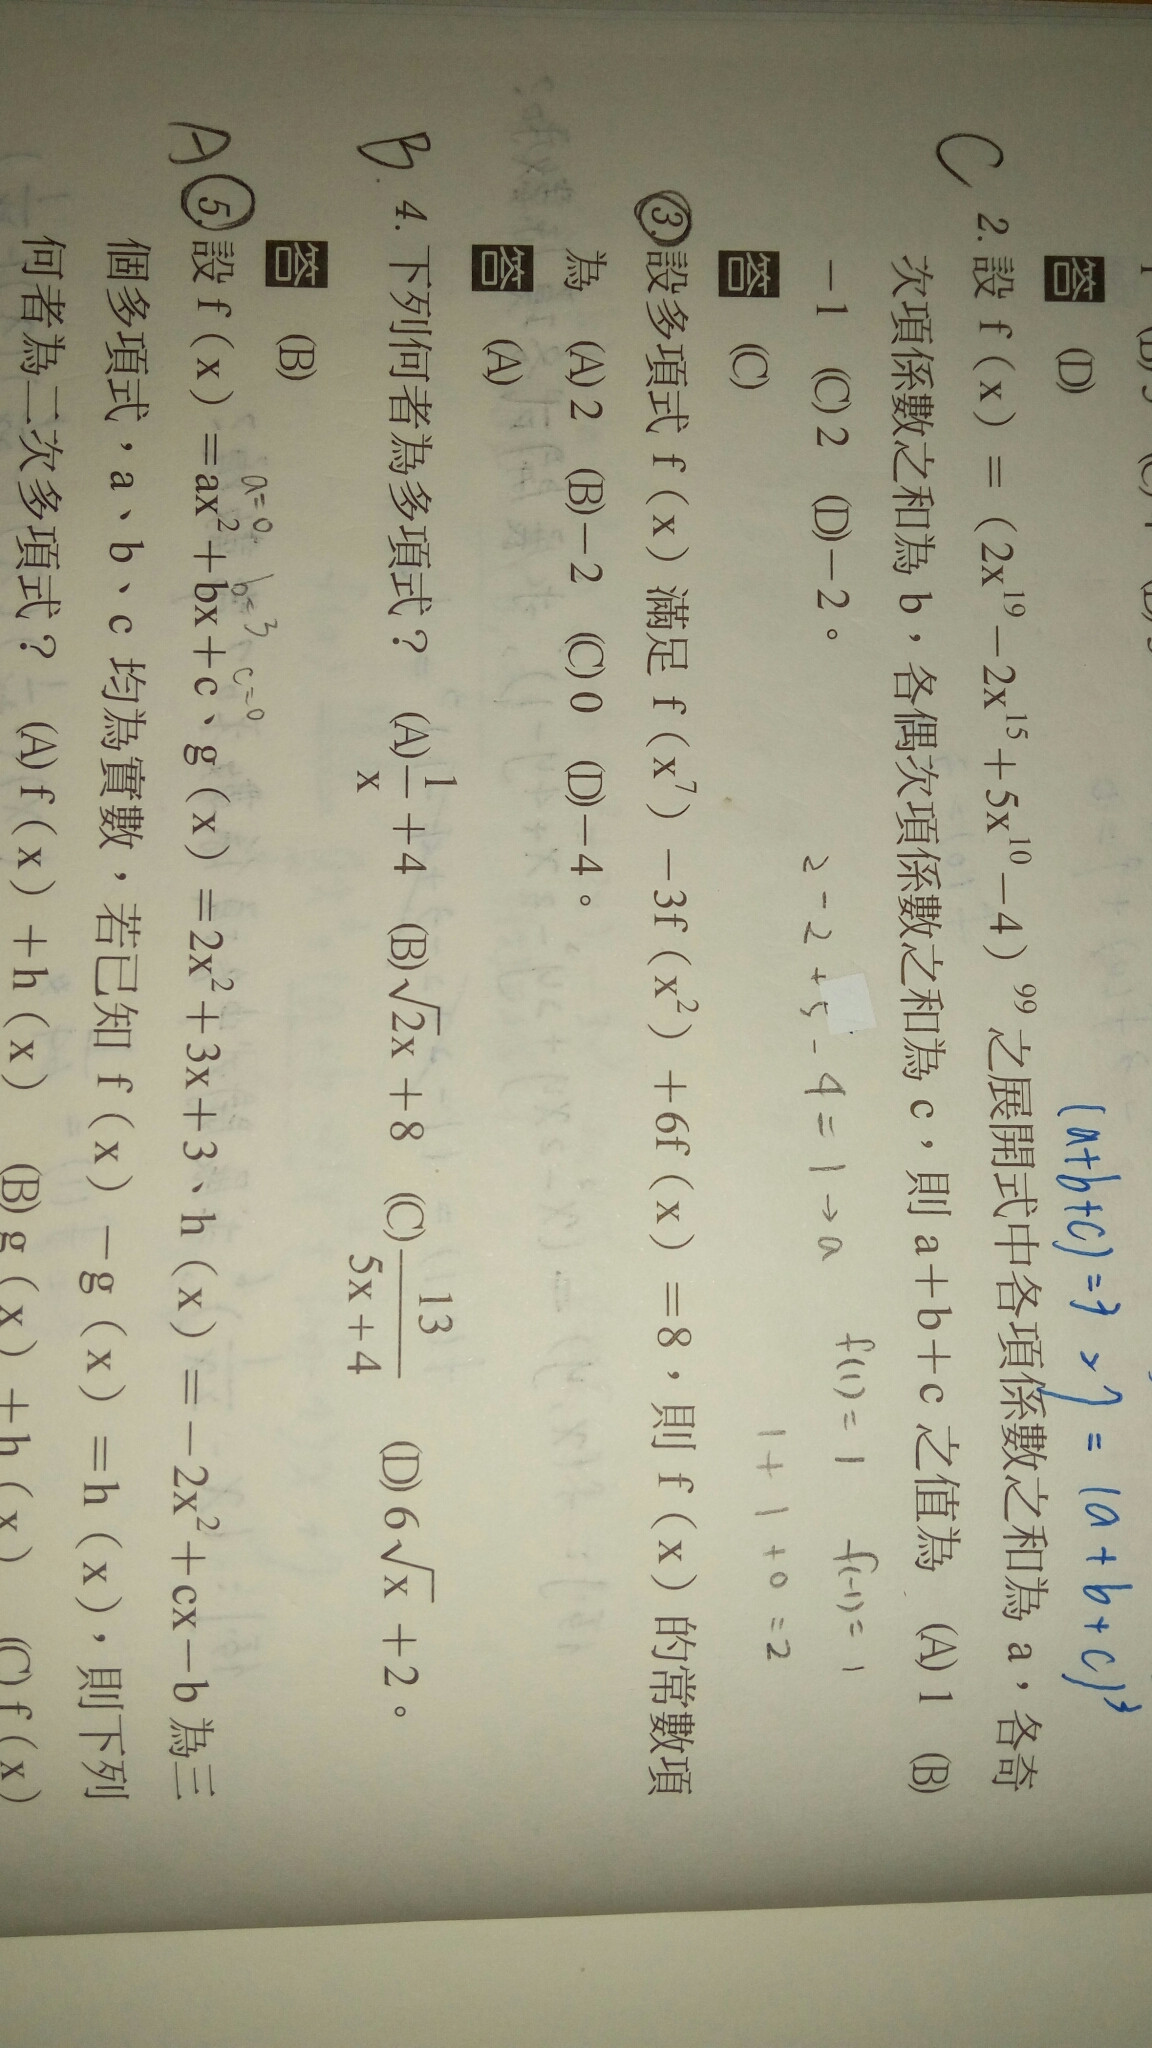 (a+b+c)=7 × 7 = (a+b+c)³
答 (D)
C 2. 設 f(x) = (2x¹⁹-2x¹⁵+5x¹⁰-4)⁹⁹ 之展開式中各項係數之和為 a，各奇
次項係數之和為 b，各偶次項係數之和為 c，則 a+b+c 之值為 (A) 1 (B)
-1 (C) 2 (D)-2。
2-2+5-4=1→a
f(1)=1 f(-1)=1
1+1+0=2
答 (C)
③ 設多項式 f(x) 滿足 f(x⁷) -3f(x²) +6f(x) =8，則 f(x) 的常數項
為 (A) 2 (B)-2 (C) 0 (D)-4。
答 (A)
B. 4. 下列何者為多項式？ (A) 1/x +4 (B) √2x+8 (C) 13/(5x+4) (D) 6√x+2。
答 (B)
a=0, b=3, c=0
A ⑤ 設 f(x) =ax²+bx+c、g(x) =2x²+3x+3、h(x) =-2x²+cx-b 為三
個多項式，a、b、c 均為實數，若已知 f(x) -g(x) =h(x)，則下列
何者為二次多項式？ (A) f(x) +h(x) (B) g(x) +h(x) (C) f(x)